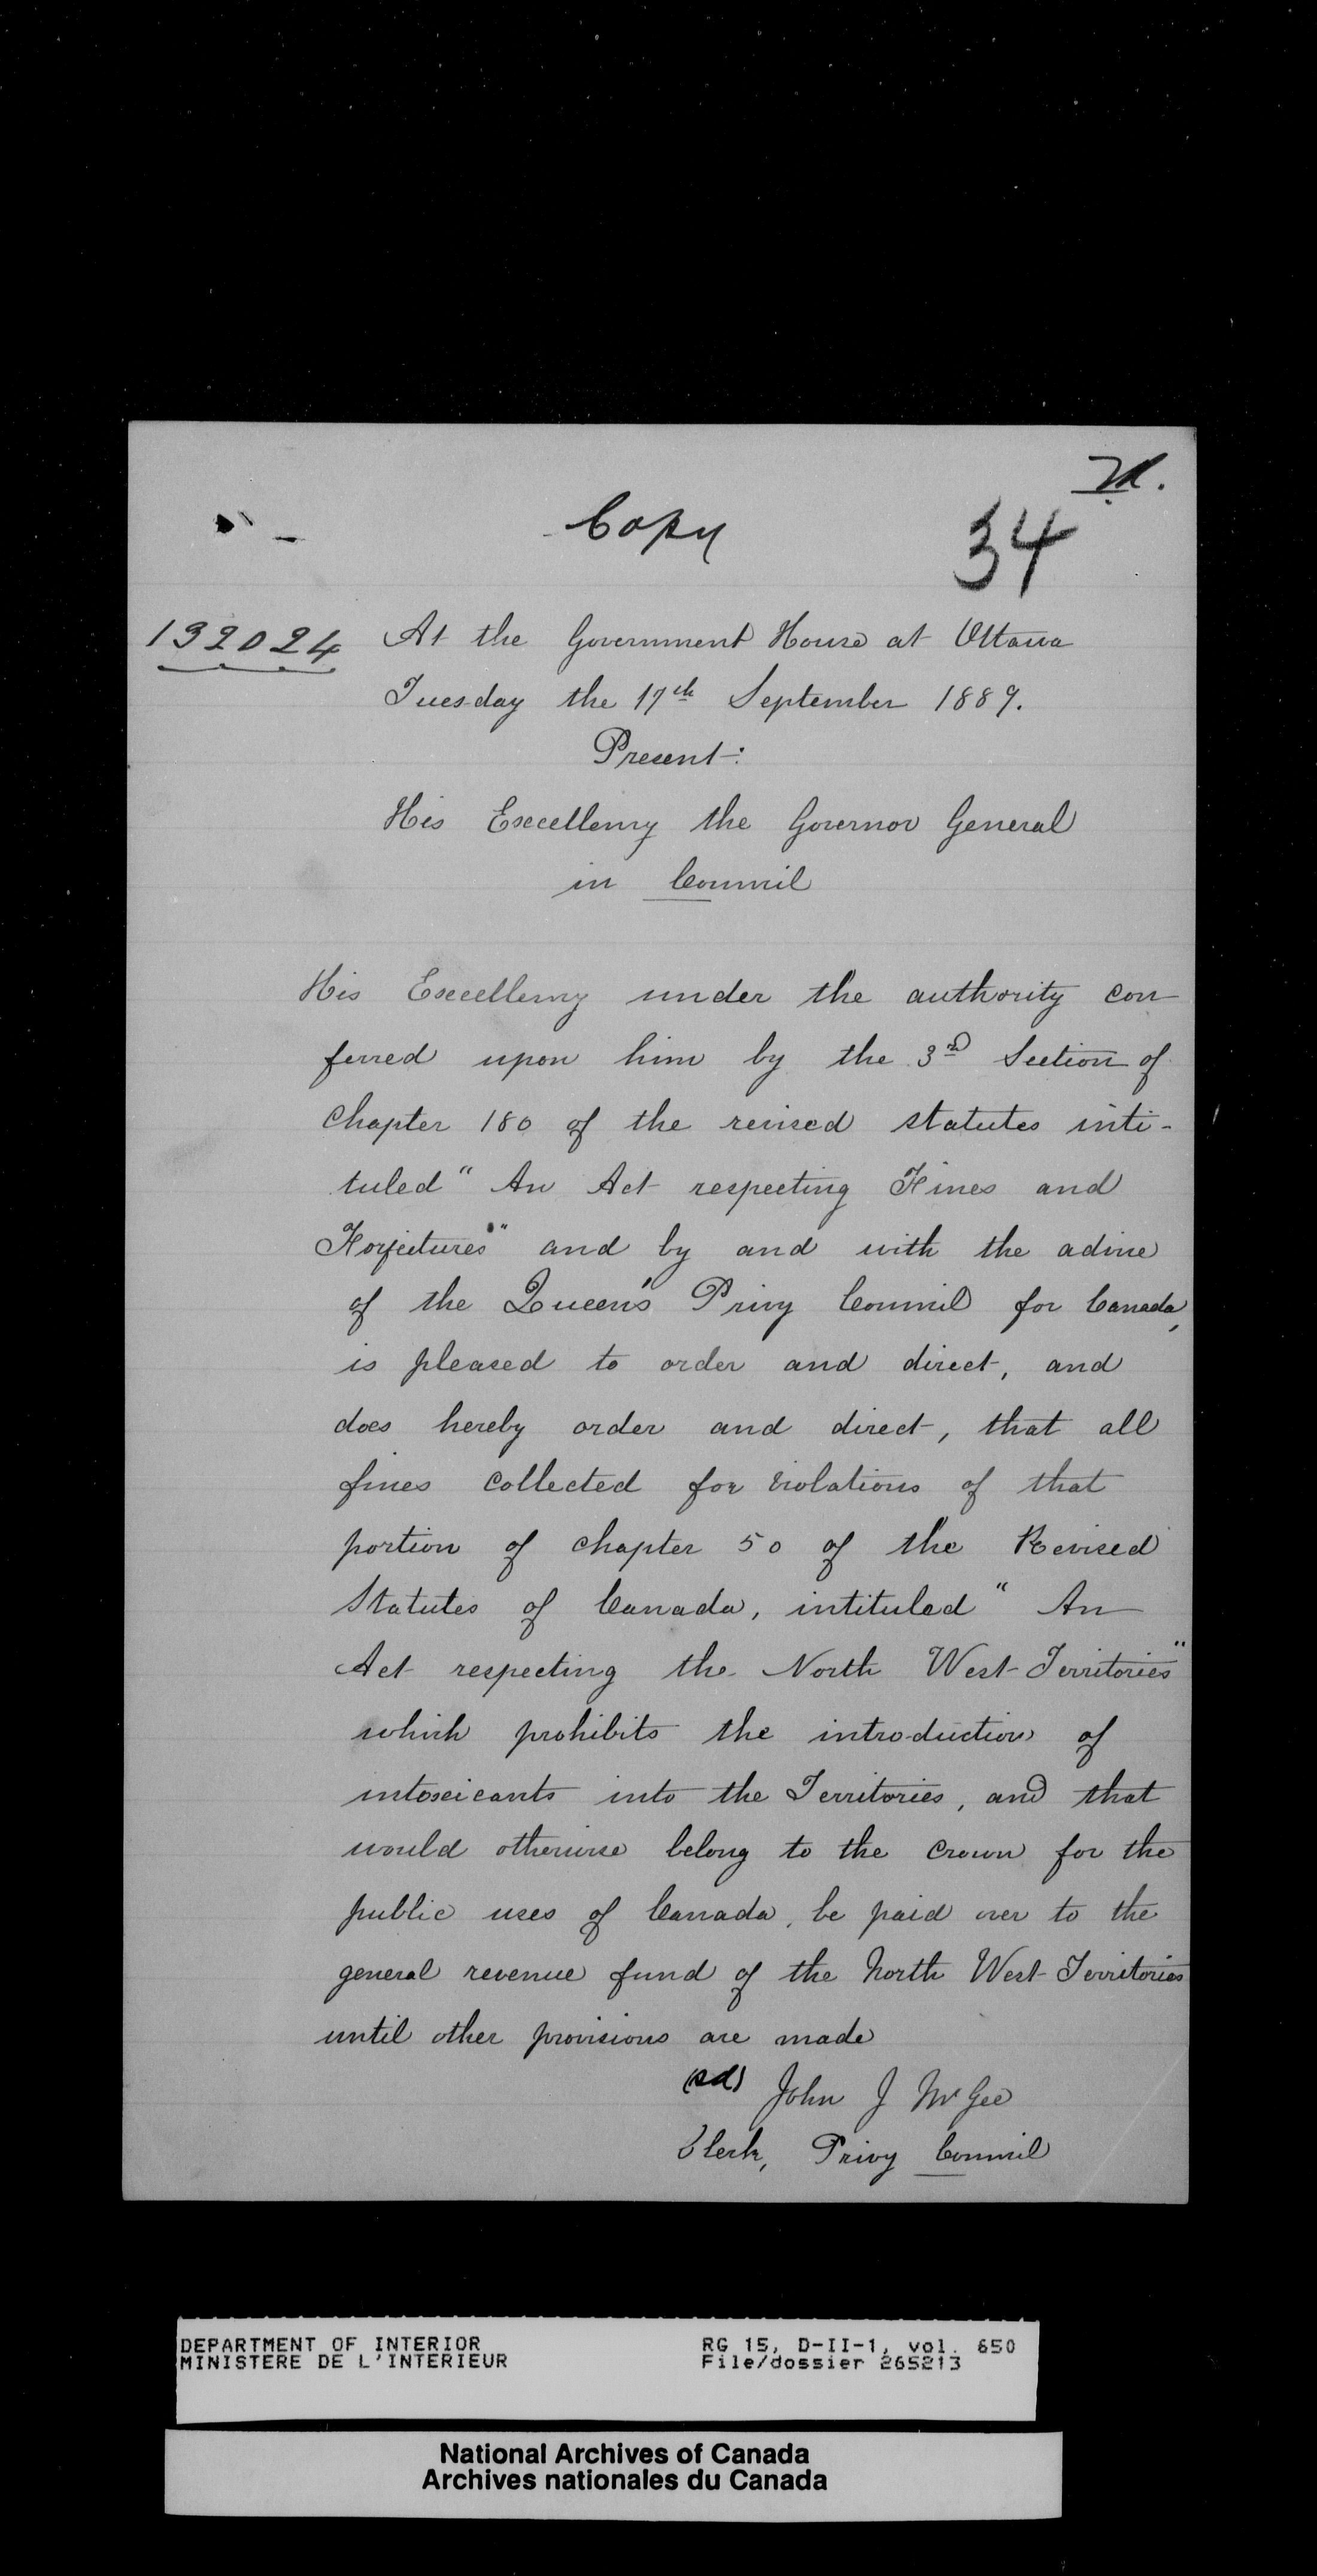 Copy
34
132024
At the Government House at Ottawa
Tuesday the 17th September 1889.
Present:
His Excellency the Governor General
in Council
His Excellency under the authority con
ferred upon him by the 3rd Section of
Chapter 180 of the revised statutes inti-
tuled "An Act respecting Fines and
Forfeitures" and by and with the advice
of the Queen's Privy Council for Canada,
is pleased to order and direct, and
does hereby order and direct, that all
fines collected for violations of that
portion of chapter 50 of the Revised
Statutes of Canada, intituled "An
Act respecting the North West Territories"
which prohibits the introduction of
intoxicants into the Territories, and that
would otherwise belong to the Crown for the
public uses of Canada, be paid over to the
general revenue fund of the North West Territories
until other provisions are made
(sd) John J McGee
Clerk, Privy Council
DEPARTMENT OF INTERIOR
MINISTERE DE L'INTERIEUR
RG 15, D-II-1, vol. 650
File/dossier 265213
National Archives of Canada
Archives nationales du Canada